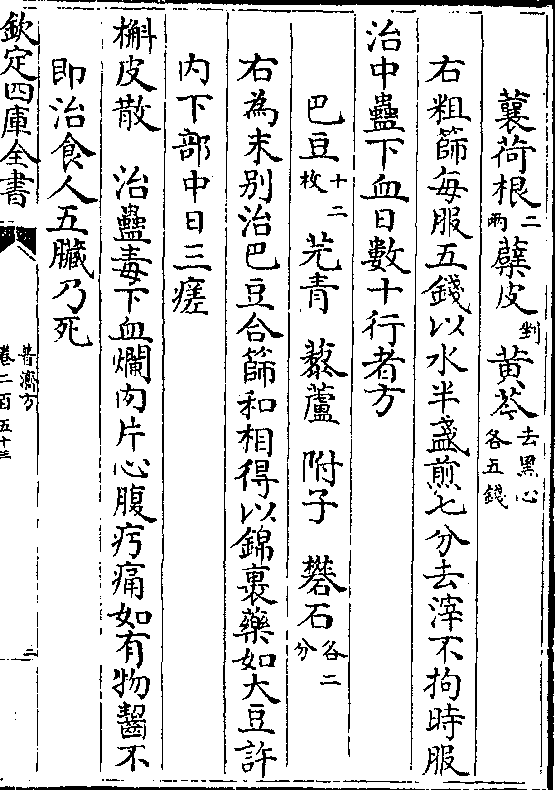 蘘荷根二兩蘗皮剉黄芩去黑心各五錢
右粗篩每服五錢以水半盞煎七分去滓不拘時服
治中蠱下血日數十行者方
巴豆十二枚芫青藜蘆附子礬石各二分
右為末别治巴豆合篩和相得以錦裹藥如大豆許
内下部中日三瘥
槲皮散治蠱毒下血爛肉片心腹㽲痛如有物齧不
即治食人五臟乃死
欽定四庫全書
普濟方
卷二百五十三
三